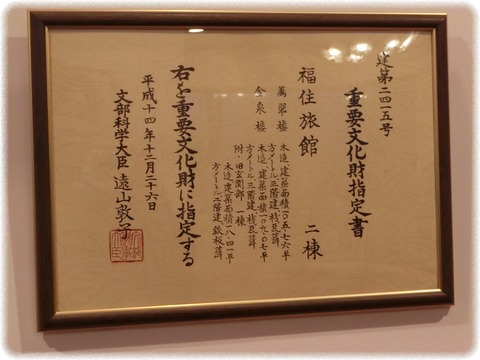 建第二四一五号
重要文化財指定書
福住旅館 二棟
萬翠楼 木造、建築面積一〇五・七六平
方メートル、三階建、桟瓦葺
金泉楼 木造、建築面積一〇九・〇七平
方メートル、三階建、桟瓦葺
附・旧玄関部 一棟
木造、建築面積一八・四一平
方メートル、二階建、鉄板葺
右を重要文化財に指定する
平成十四年十二月二十六日
文部科学大臣 遠山敦子